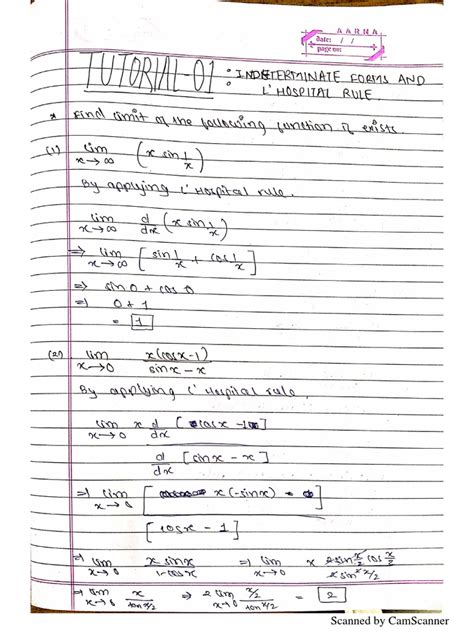 AARNA
date: / /
page no:
TUTORIAL-01 : INDETERMINATE FORMS AND
L'HOSPITAL RULE.
* Find limit of the following function if exists.
(1) lim x→∞ (x sin 1/x)
By applying L'Hospital rule.
lim x→∞ d/dx (x sin 1/x)
⇒ lim x→∞ [sin 1/x + cos 1/x]
⇒ sin 0 + cos 0
⇒ 0 + 1
= 1
(2) lim x→0 x(cosx-1) / sinx - x
By applying L'Hospital rule.
lim x→0 x d/dx [cosx - 1] / d/dx [sinx - x]
⇒ lim x→0 [x(-sinx) - ] / [cosx - 1]
⇒ lim x→0 x sinx / 1-cosx ⇒ lim x→0 x 2sin x/2 cos x/2 / 2 sin² x/2
⇒ lim x→0 x / tan x/2 ⇒ 2 lim x→0 x/2 / tan x/2 = 2
Scanned by CamScanner